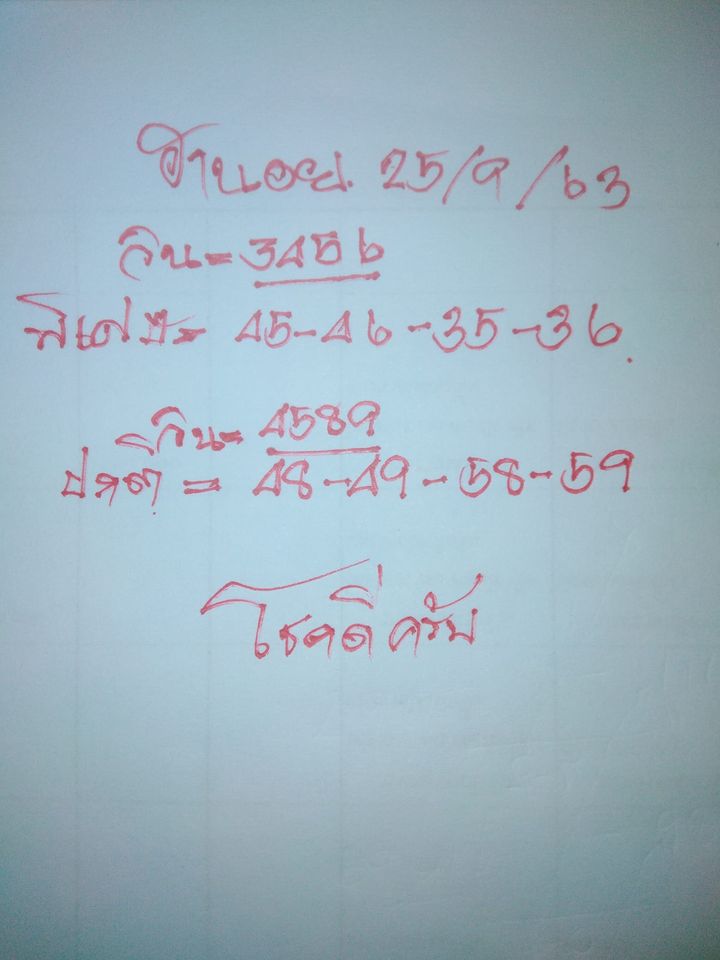 ฮานอย. 25/9/63
วิน=3456
พิเศษ= 45-46-35-36.
วิน= 4589
ปกติ = 48-49-58-59
โชคดีครับ